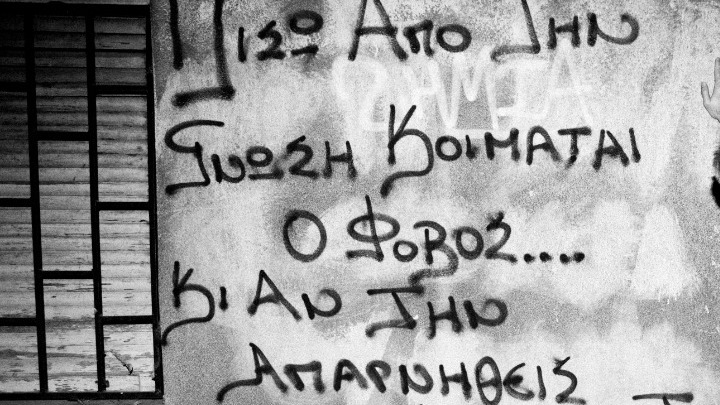 Πίσω Από Την
Γνωση Κοιμαται
Ο Φοβος....
Κι Αν Την
Απαρνηθεις